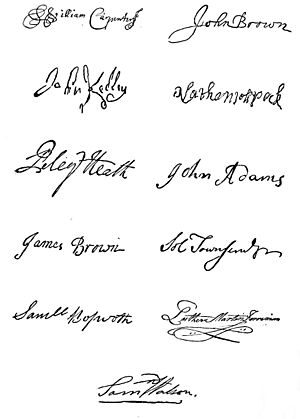 William Carpenter
John Brown
John Kelly
Nathan Peck
Peleg Heath
John Adams
James Brown
Sol Townsend
Samll
Luther Martin
Samll Watson.